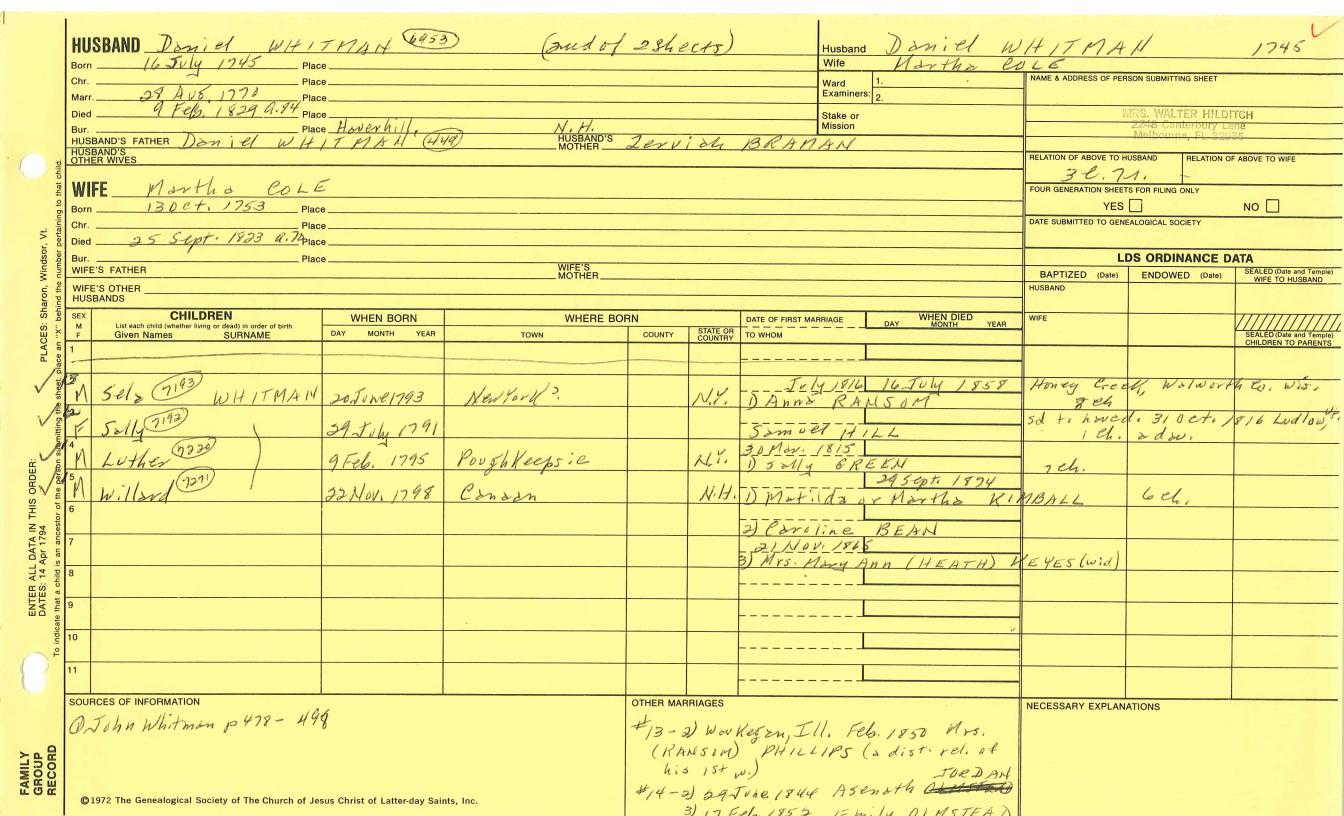 HUSBAND Daniel WHITMAN 6953 (2nd of 2 sheets)
Born 16 July 1745 Place
Chr. Place
Marr. 28 Aug. 1770 Place
Died 9 Feb. 1829 a.84 Place
Bur. Place Haverhill, N.H.
HUSBAND'S FATHER Daniel WHITMAN HUSBAND'S MOTHER Zerviah BRAMAN
HUSBAND'S OTHER WIVES
Husband Daniel WHITMAN 1745
Wife Martha COLE
Ward Examiners: 1.
2.
Stake or Mission
NAME & ADDRESS OF PERSON SUBMITTING SHEET
MRS. WALTER HILDITCH
2248 Canterbury Lane
Melbourne, FL 32935
RELATION OF ABOVE TO HUSBAND RELATION OF ABOVE TO WIFE
3C. 7r. -
FOUR GENERATION SHEETS FOR FILING ONLY
YES NO
DATE SUBMITTED TO GENEALOGICAL SOCIETY
WIFE Martha COLE
Born 13 Oct. 1753 Place
Chr. Place
Died 25 Sept. 1823 a.70 Place
Bur. Place
WIFE'S FATHER WIFE'S MOTHER
WIFE'S OTHER HUSBANDS
LDS ORDINANCE DATA
BAPTIZED (Date) ENDOWED (Date) SEALED (Date and Temple) WIFE TO HUSBAND
HUSBAND
WIFE
SEALED (Date and Temple) CHILDREN TO PARENTS
SEX M F CHILDREN WHEN BORN WHERE BORN DATE OF FIRST MARRIAGE WHEN DIED
List each child (whether living or dead) in order of birth
Given Names SURNAME DAY MONTH YEAR TOWN COUNTY STATE OR COUNTRY TO WHOM DAY MONTH YEAR
1
July 1816 16 July 1858 Honey Creek, Walworth Co. Wis.
M Sela 7193 WHITMAN 20 June 1793 New York? N.Y. 1) Anna RANSOM 8 ch
sd to have d. 31 Oct. 1816 Ludlow, Vt.
F Sally 7192 29 July 1791 Samuel HILL 1 ch. a dau.
4 30 Mar. 1815
M Luther 7220 9 Feb. 1795 Poughkeepsie N.Y. 1) Sally GREEN 7 ch.
5 29 Sept. 1874
M Willard 7271 22 Nov. 1798 Canaan N.H. 1) Matilda or Martha KIMBALL 6 ch.
6
2) Caroline BEAN
7 21 Nov. 1865
3) Mrs. Mary Ann (HEATH) KEYES (wid)
8
9
10
11
SOURCES OF INFORMATION
1) John Whitman p 478 - 498
©1972 The Genealogical Society of The Church of Jesus Christ of Latter-day Saints, Inc.
OTHER MARRIAGES
#13-2) Waukegan, Ill. Feb. 1850 Mrs.
(RANSOM) PHILLIPS (a dist. rel. of
his 1st w.)
JORDAN
#14-2) 29 June 1844 Asenath OLMSTEAD
3) 17 Feb 1852 Emily OLMSTEAD
NECESSARY EXPLANATIONS
FAMILY GROUP RECORD
ENTER ALL DATA IN THIS ORDER:
DATES: 14 Apr 1794
PLACES: Sharon, Windsor, Vt.
To indicate that a child is an ancestor of the person submitting the sheet, place an "X" behind the number pertaining to that child.